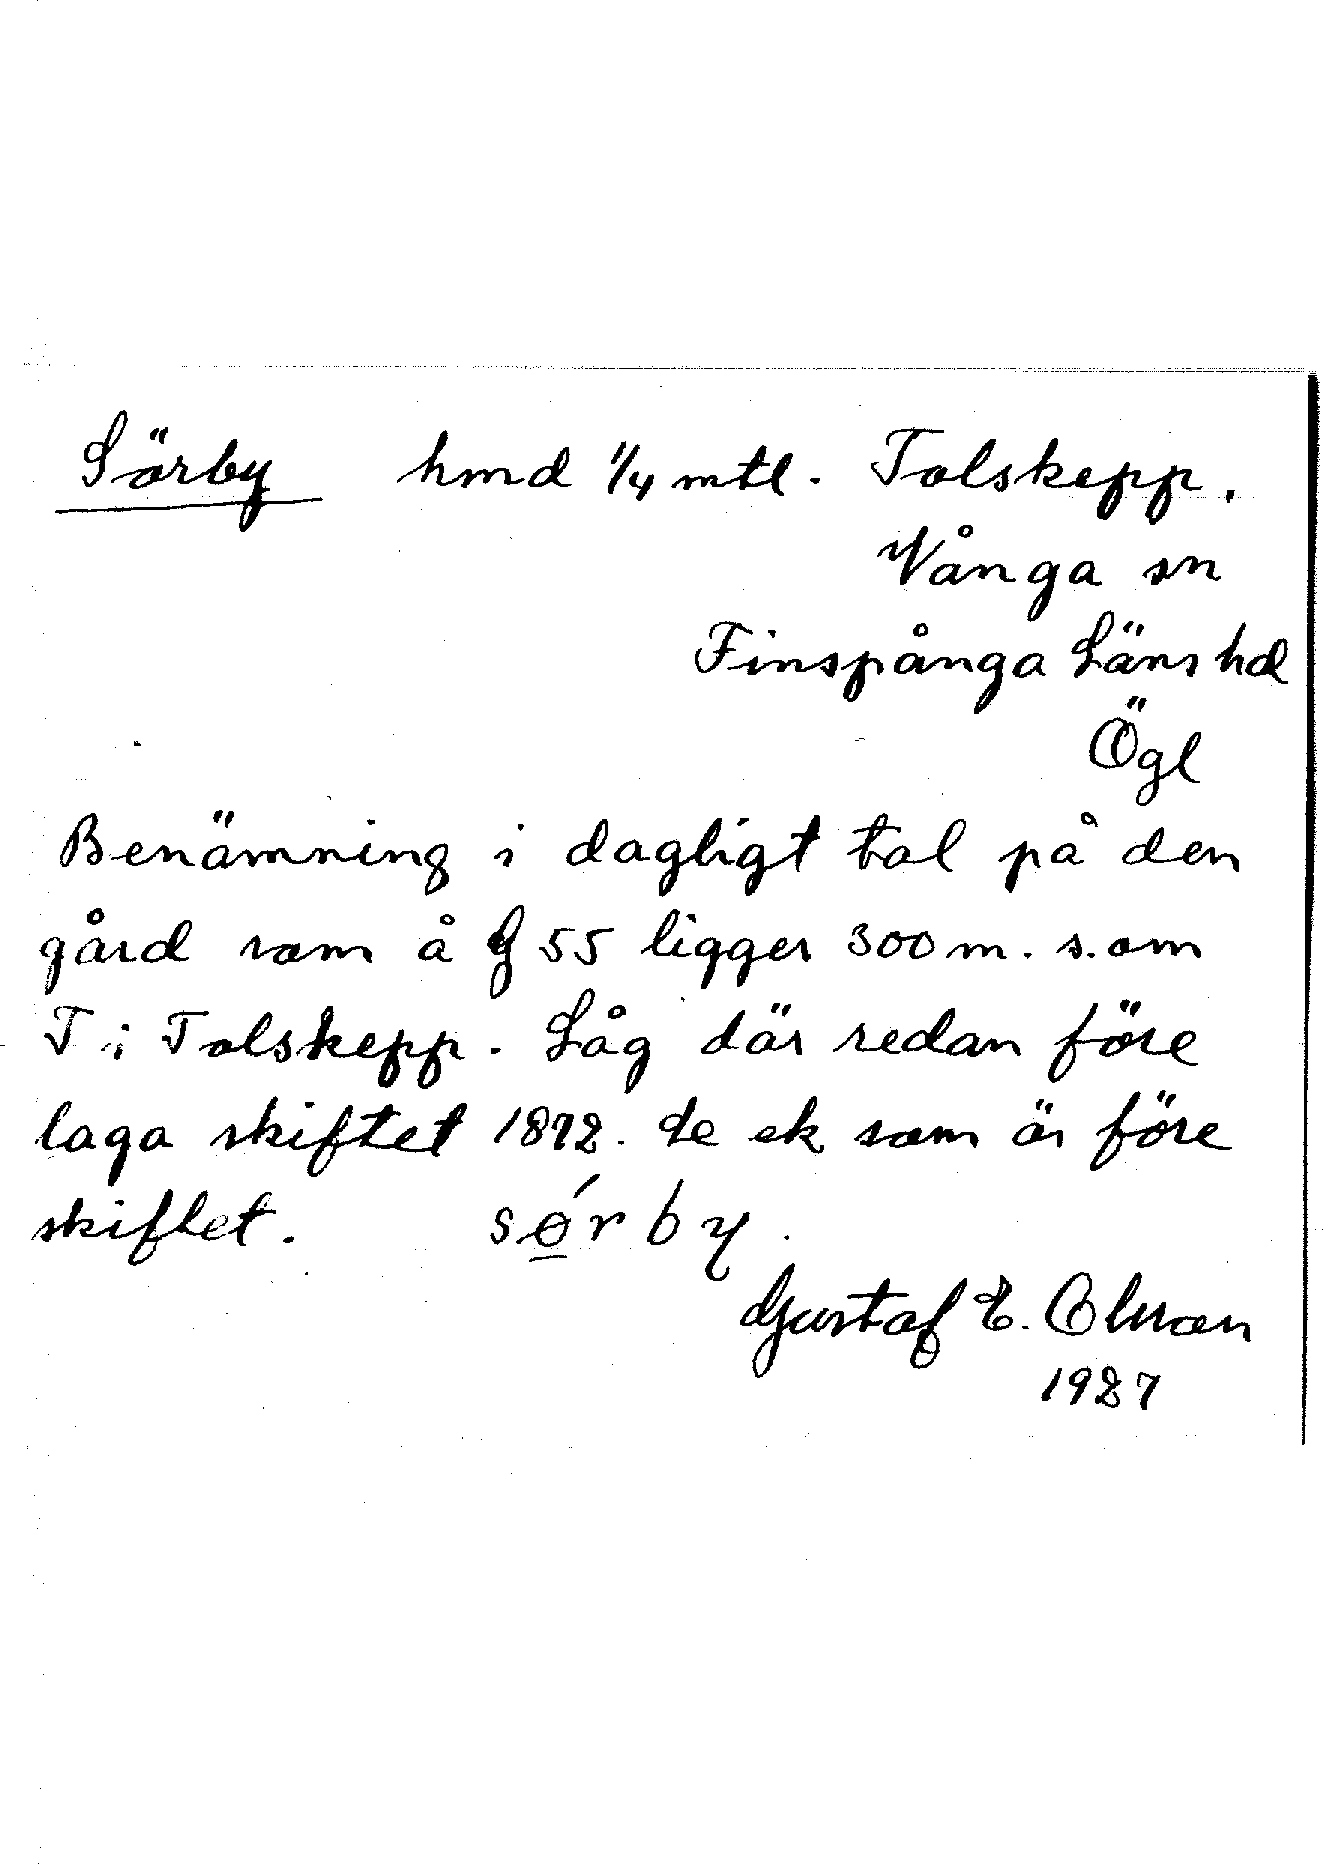 Sörby hmd 1/4 mtl. Tolskepp.
Vånga sn
Finspånga Läns hd
Ögl
Benämning i dagligt tal på den
gård som å G 55 ligger 300 m. s. om
T i Tolskepp. Låg där redan före
laga skiftet 1872. se ek som är före
skiftet. sǿrby.
Gustaf E. Olsson
1927